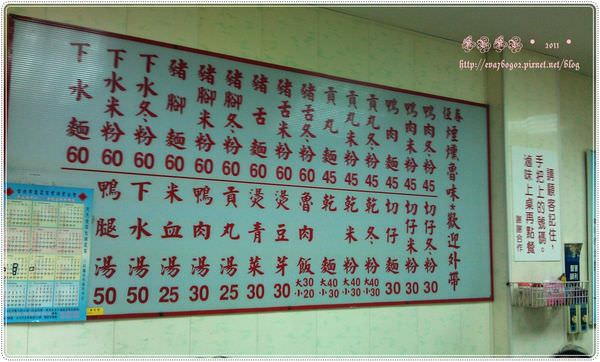 • 2011 •
http://eva760902.pixnet.net/blog
伍春煙燻魯味*歡迎外帶
鴨肉冬粉 45
鴨肉米粉 45
鴨肉麵 45
貢丸冬粉 45
貢丸米粉 45
貢丸麵 45
豬舌冬粉 60
豬舌米粉 60
豬舌麵 60
豬腳冬粉 60
豬腳米粉 60
豬腳麵 60
下水冬粉 60
下水米粉 60
下水麵 60
切仔冬粉 30
切仔米粉 30
切仔麵 30
乾冬粉 大40 小30
乾米粉 大40 小30
乾麵 大40 小30
魯肉飯 大30 小20
燙豆芽 30
燙青菜 30
貢丸湯 25
鴨肉湯 30
米血湯 25
下水湯 50
鴨腿湯 50
請顧客記住，
手把上的號碼。
滷味上桌再點餐
謝謝合作